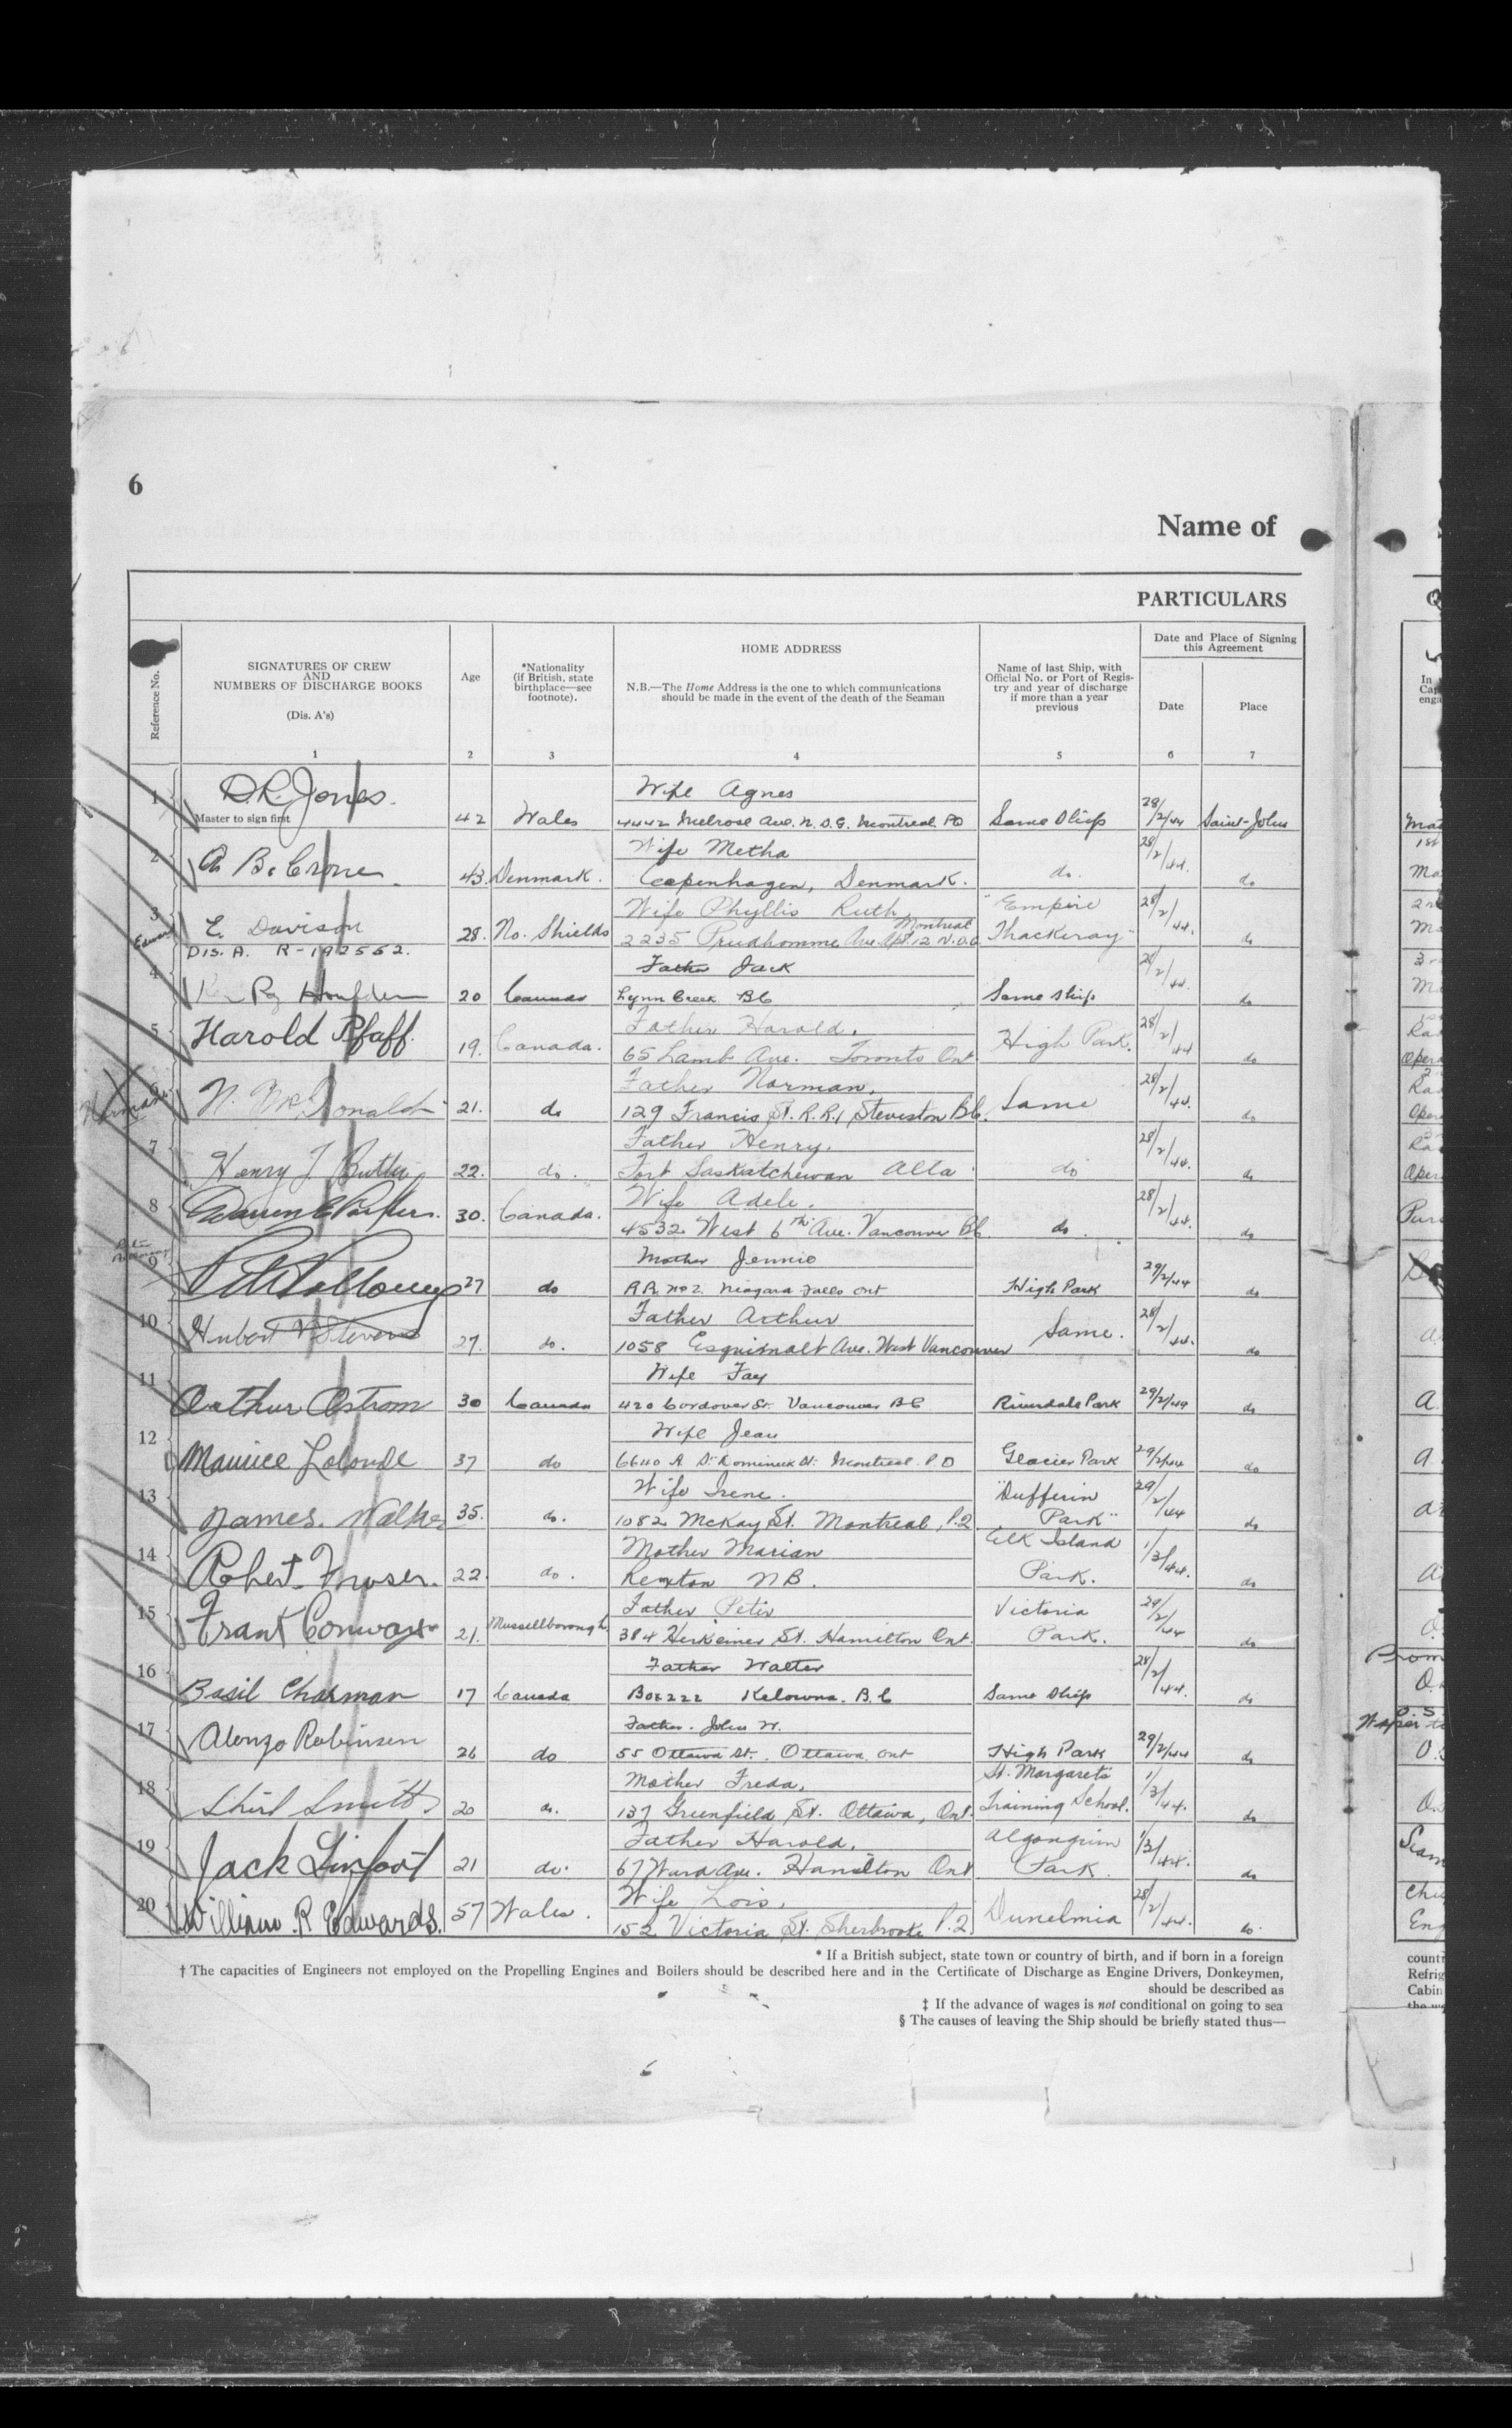 6
Name of
PARTICULARS
Reference No.
SIGNATURES OF CREW
AND
NUMBERS OF DISCHARGE BOOKS
(Dis. A's)
1
Age
2
*Nationality
(if British, state
birthplace—see
footnote).
3
HOME ADDRESS
N.B.—The Home Address is the one to which communications
should be made in the event of the death of the Seaman
4
Name of last Ship, with
Official No. or Port of Regis-
try and year of discharge
if more than a year
previous
5
Date and Place of Signing
this Agreement
Date
6
Place
7
1 D.R. Jones. Wife Agnes
Master to sign first 42 Wales 4442 Melrose Ave. N.D.G. Montreal PQ Same Ship 28/2/44 Saint-John
2 Wife Metha
A. B. Crone 43. Denmark. Copenhagen, Denmark. do. 28/2/44. do
3 Wife Phyllis Ruth, "Empire
Edward E. Davison 28. No. Shields 2235 Prudhomme Ave. Apt. 12 N.D.G. Montreal Thackeray" 28/2/44. do
DIS. A. R-192552.
4 Father Jack
Houlden 20 Canada Lynn Creek BC Same ship 28/2/44. do
5 Father Harold.
Harold Pfaff. 19. Canada. 65 Lamb Ave. Toronto Ont High Park. 28/2/44 do
6 Father Norman.
Norman N. McDonald 21. do 129 Francis St. R.R.1 Steveston BC. Same 28/2/44. do
7 Father Henry.
Henry J. Butler 22. do. Fort Saskatchewan Alta. do 28/2/44. do
8 Wife Adele.
Warren 30. Canada. 4532 West 6th Ave. Vancouver BC. do. 28/2/44. do
9 Mother Jennie
27 do R.R. No 2. Niagara Falls Ont High Park 29/2/44 do
10 Father Arthur
Hubert V. Stevens 27. do. 1058 Esquimalt Ave. West Vancouver Same. 28/2/44. do
11 Wife Fay
Arthur Ostrom 30 Canada 420 Cordover St. Vancouver BC Riverdale Park 29/2/44 do
12 Wife Jean
Maurice Lalonde 37 do 6640 A St Dominick St. Montreal. P.Q Glacier Park 29/2/44 do
13 Wife Irene. "Dufferin
James. Walker 35. do. 1082 McKay St. Montreal, P.Q. Park" 29/2/44 do
14 Mother Marian Elk Island
Robert Fraser. 22. do. Rexton NB. Park. 1/3/44. do
15 Father Peter Victoria
Frank Conway 21. Mussellborough. 384 Herkeimer St. Hamilton Ont. Park. 29/2/44 do
16 Father Walter
Basil Charman 17 Canada Box 222 Kelowna. B.C Same Ship 28/2/44. do
17 Father. John W.
Alonzo Robinson 26 do 55 Ottawa St., Ottawa, Ont High Park 29/2/44 do
18 Mother Freda. St. Margarets
Smith 20 do. 137 Greenfield St. Ottawa, Ont. Training School. 1/3/44. do
19 Father Harold. Algonquin
Jack Linfoot 21 do. 67 Ward Ave. Hamilton Ont Park. 1/3/44. do
20 Wife Lois.
William. R Edwards. 57 Wales. 152 Victoria St. Sherbrooke P.Q. Dunelmia 28/2/44. do.
* If a British subject, state town or country of birth, and if born in a foreign
† The capacities of Engineers not employed on the Propelling Engines and Boilers should be described here and in the Certificate of Discharge as Engine Drivers, Donkeymen,
should be described as
‡ If the advance of wages is not conditional on going to sea
§ The causes of leaving the Ship should be briefly stated thus—
countr
Refrig
Cabin